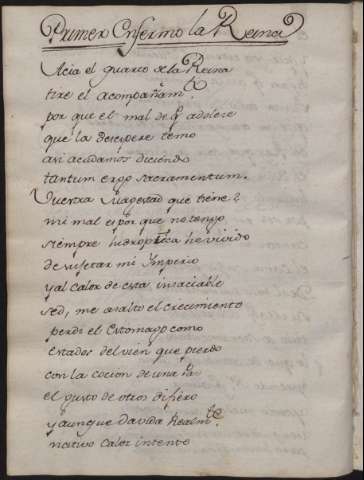 Primer Enfermo la Reina
Acia el quarto de la Reina
tire el acompañam.to
por que el mal de q adolece
que la desespere temo
asi acudamos diciendo
tantum ergo sacramentum.
Vuestra Magestad que tiene?
mi mal es por que no tengo
siempre hidropica he vivido
de sugetar mi Ymperio
y al calor de esta insaciable
sed, me asalto el crecimiento
perdi el Estomago como
estados del vien que pierdo
con la cocion de una
el gusto de otros difiero
y aunque da vida Realm.te
nativo calor intento